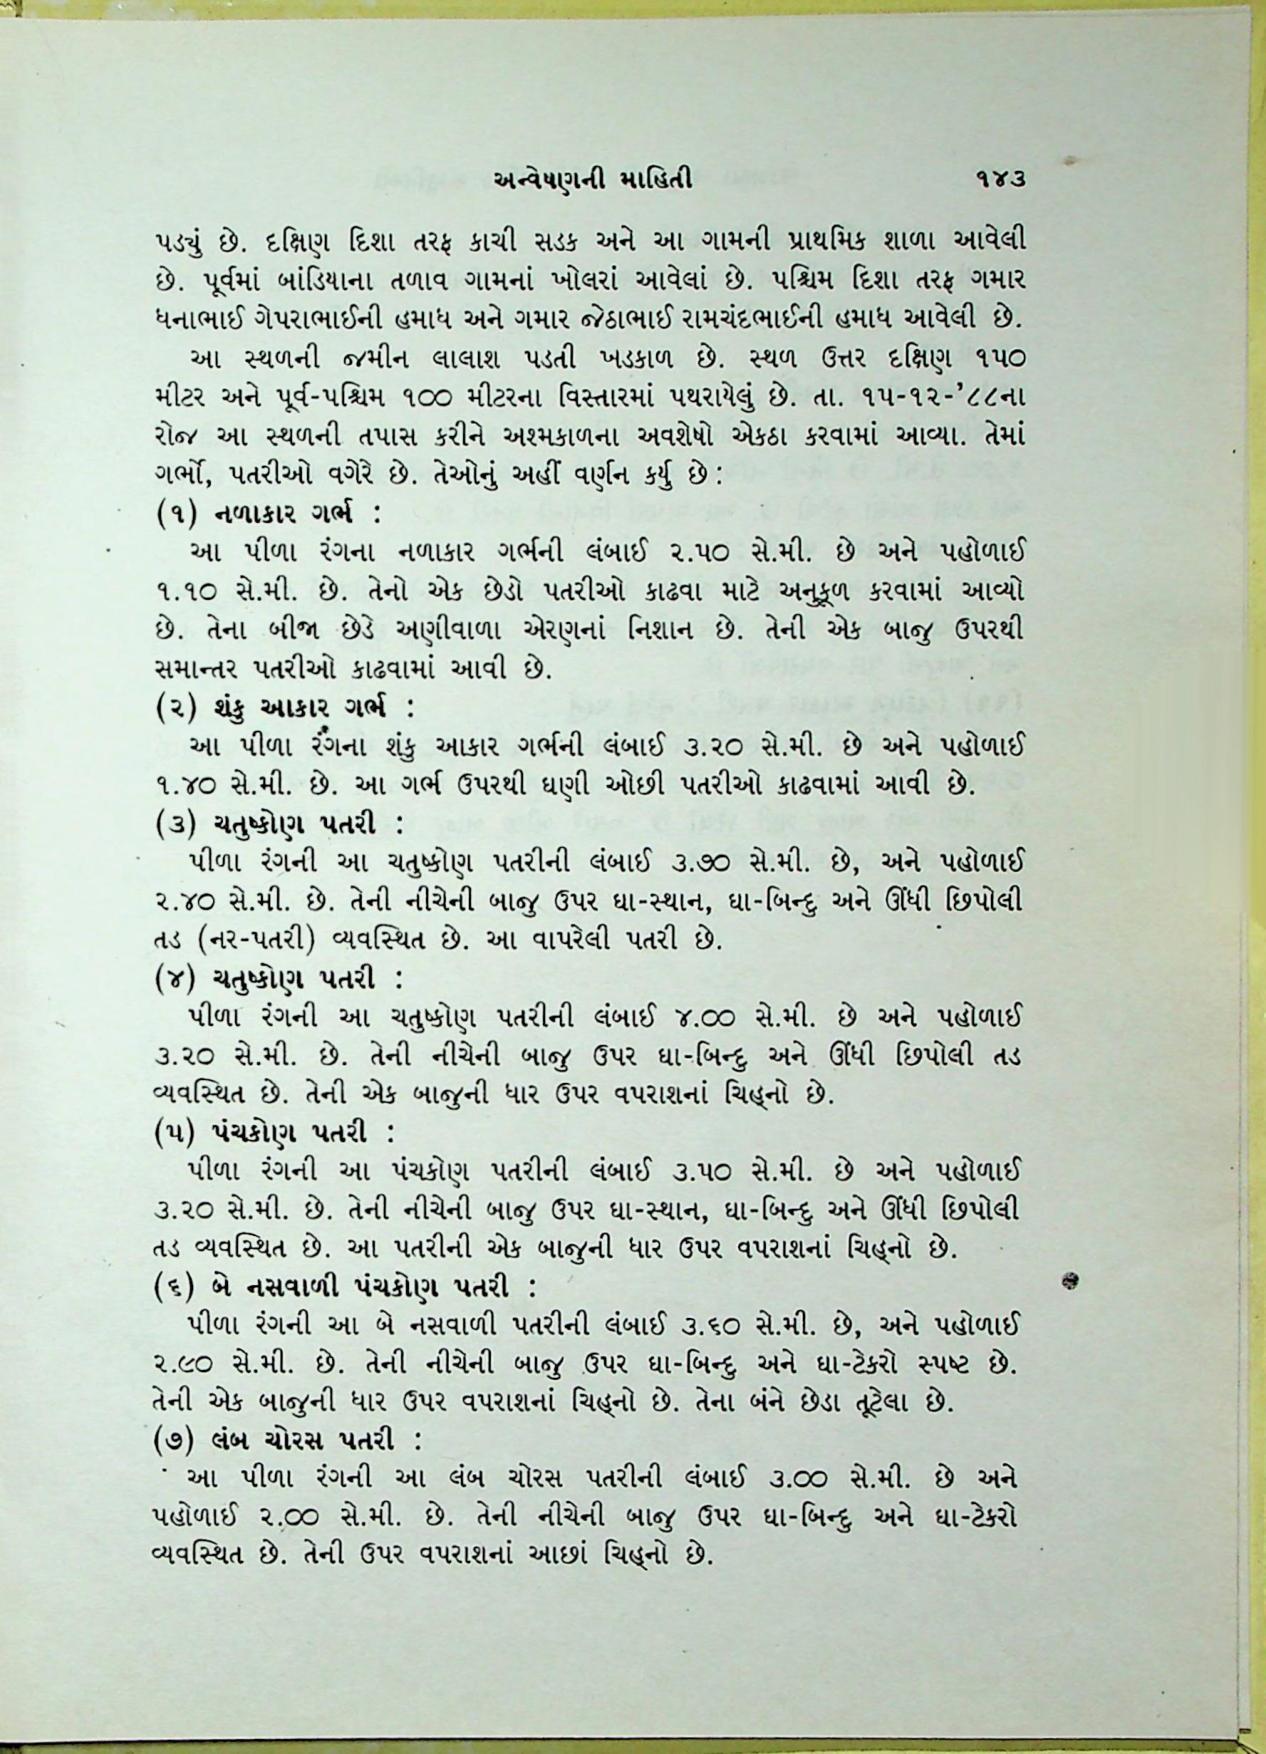 અન્વેષણની માહિતી ૧૪૩
પડ્યું છે. દક્ષિણ દિશા તરફ કાચી સડક અને આ ગામની પ્રાથમિક શાળા આવેલી
છે. પૂર્વમાં બાંડિયાના તળાવ ગામનાં ખોલરાં આવેલાં છે. પશ્ચિમ દિશા તરફ ગમાર
ધનાભાઈ ગેપરાભાઈની હમાધ અને ગમાર જેઠાભાઈ રામચંદભાઈની હમાધ આવેલી છે.
આ સ્થળની જમીન લાલાશ પડતી ખડકાળ છે. સ્થળ ઉત્તર દક્ષિણ ૧૫૦
મીટર અને પૂર્વ-પશ્ચિમ ૧૦૦ મીટરના વિસ્તારમાં પથરાયેલું છે. તા. ૧૫-૧૨-'૮૮ના
રોજ આ સ્થળની તપાસ કરીને અશ્મકાળના અવશેષો એકઠા કરવામાં આવ્યા. તેમાં
ગર્ભો, પતરીઓ વગેરે છે. તેઓનું અહીં વર્ણન કર્યુ છે :
(૧) નળાકાર ગર્ભ :
આ પીળા રંગના નળાકાર ગર્ભની લંબાઈ ૨.૫૦ સે.મી. છે અને પહોળાઈ
૧.૧૦ સે.મી. છે. તેનો એક છેડો પતરીઓ કાઢવા માટે અનુકૂળ કરવામાં આવ્યો
છે. તેના બીજા છેડે અણીવાળા એરણનાં નિશાન છે. તેની એક બાજુ ઉપરથી
સમાન્તર પતરીઓ કાઢવામાં આવી છે.
(૨) શંકુ આકાર ગર્ભ :
આ પીળા રંગના શંકુ આકાર ગર્ભની લંબાઈ ૩.૨૦ સે.મી. છે અને પહોળાઈ
૧.૪૦ સે.મી. છે. આ ગર્ભ ઉપરથી ઘણી ઓછી પતરીઓ કાઢવામાં આવી છે.
(૩) ચતુષ્કોણ પતરી :
પીળા રંગની આ ચતુષ્કોણ પતરીની લંબાઈ ૩.૭૦ સે.મી. છે, અને પહોળાઈ
૨.૪૦ સે.મી. છે. તેની નીચેની બાજુ ઉપર ઘા-સ્થાન, ઘા-બિન્દુ અને ઊંધી છિપોલી
તડ (નર-પતરી) વ્યવસ્થિત છે. આ વાપરેલી પતરી છે.
(૪) ચતુષ્કોણ પતરી :
પીળા રંગની આ ચતુષ્કોણ પતરીની લંબાઈ ૪.૦૦ સે.મી. છે અને પહોળાઈ
૩.૨૦ સે.મી. છે. તેની નીચેની બાજુ ઉપર ઘા-બિન્દુ અને ઊંધી છિપોલી તડ
વ્યવસ્થિત છે. તેની એક બાજુની ધાર ઉપર વપરાશનાં ચિહ્નો છે.
(૫) પંચકોણ પતરી :
પીળા રંગની આ પંચકોણ પતરીની લંબાઈ ૩.૫૦ સે.મી. છે અને પહોળાઈ
૩.૨૦ સે.મી. છે. તેની નીચેની બાજુ ઉપર ઘા-સ્થાન, ઘા-બિન્દુ અને ઊંધી છિપોલી
તડ વ્યવસ્થિત છે. આ પતરીની એક બાજુની ધાર ઉપર વપરાશનાં ચિહ્નો છે.
(૬) બે નસવાળી પંચકોણ પતરી :
પીળા રંગની આ બે નસવાળી પતરીની લંબાઈ ૩.૬૦ સે.મી. છે, અને પહોળાઈ
૨.૯૦ સે.મી. છે. તેની નીચેની બાજુ ઉપર ઘા-બિન્દુ અને ઘા-ટેકરો સ્પષ્ટ છે.
તેની એક બાજુની ધાર ઉપર વપરાશનાં ચિહ્નો છે. તેના બંને છેડા તૂટેલા છે.
(૭) લંબ ચોરસ પતરી :
આ પીળા રંગની આ લંબ ચોરસ પતરીની લંબાઈ ૩.૦૦ સે.મી. છે અને
પહોળાઈ ૨.૦૦ સે.મી. છે. તેની નીચેની બાજુ ઉપર ઘા-બિન્દુ અને ઘા-ટેકરો
વ્યવસ્થિત છે. તેની ઉપર વપરાશનાં આછાં ચિહ્નો છે.